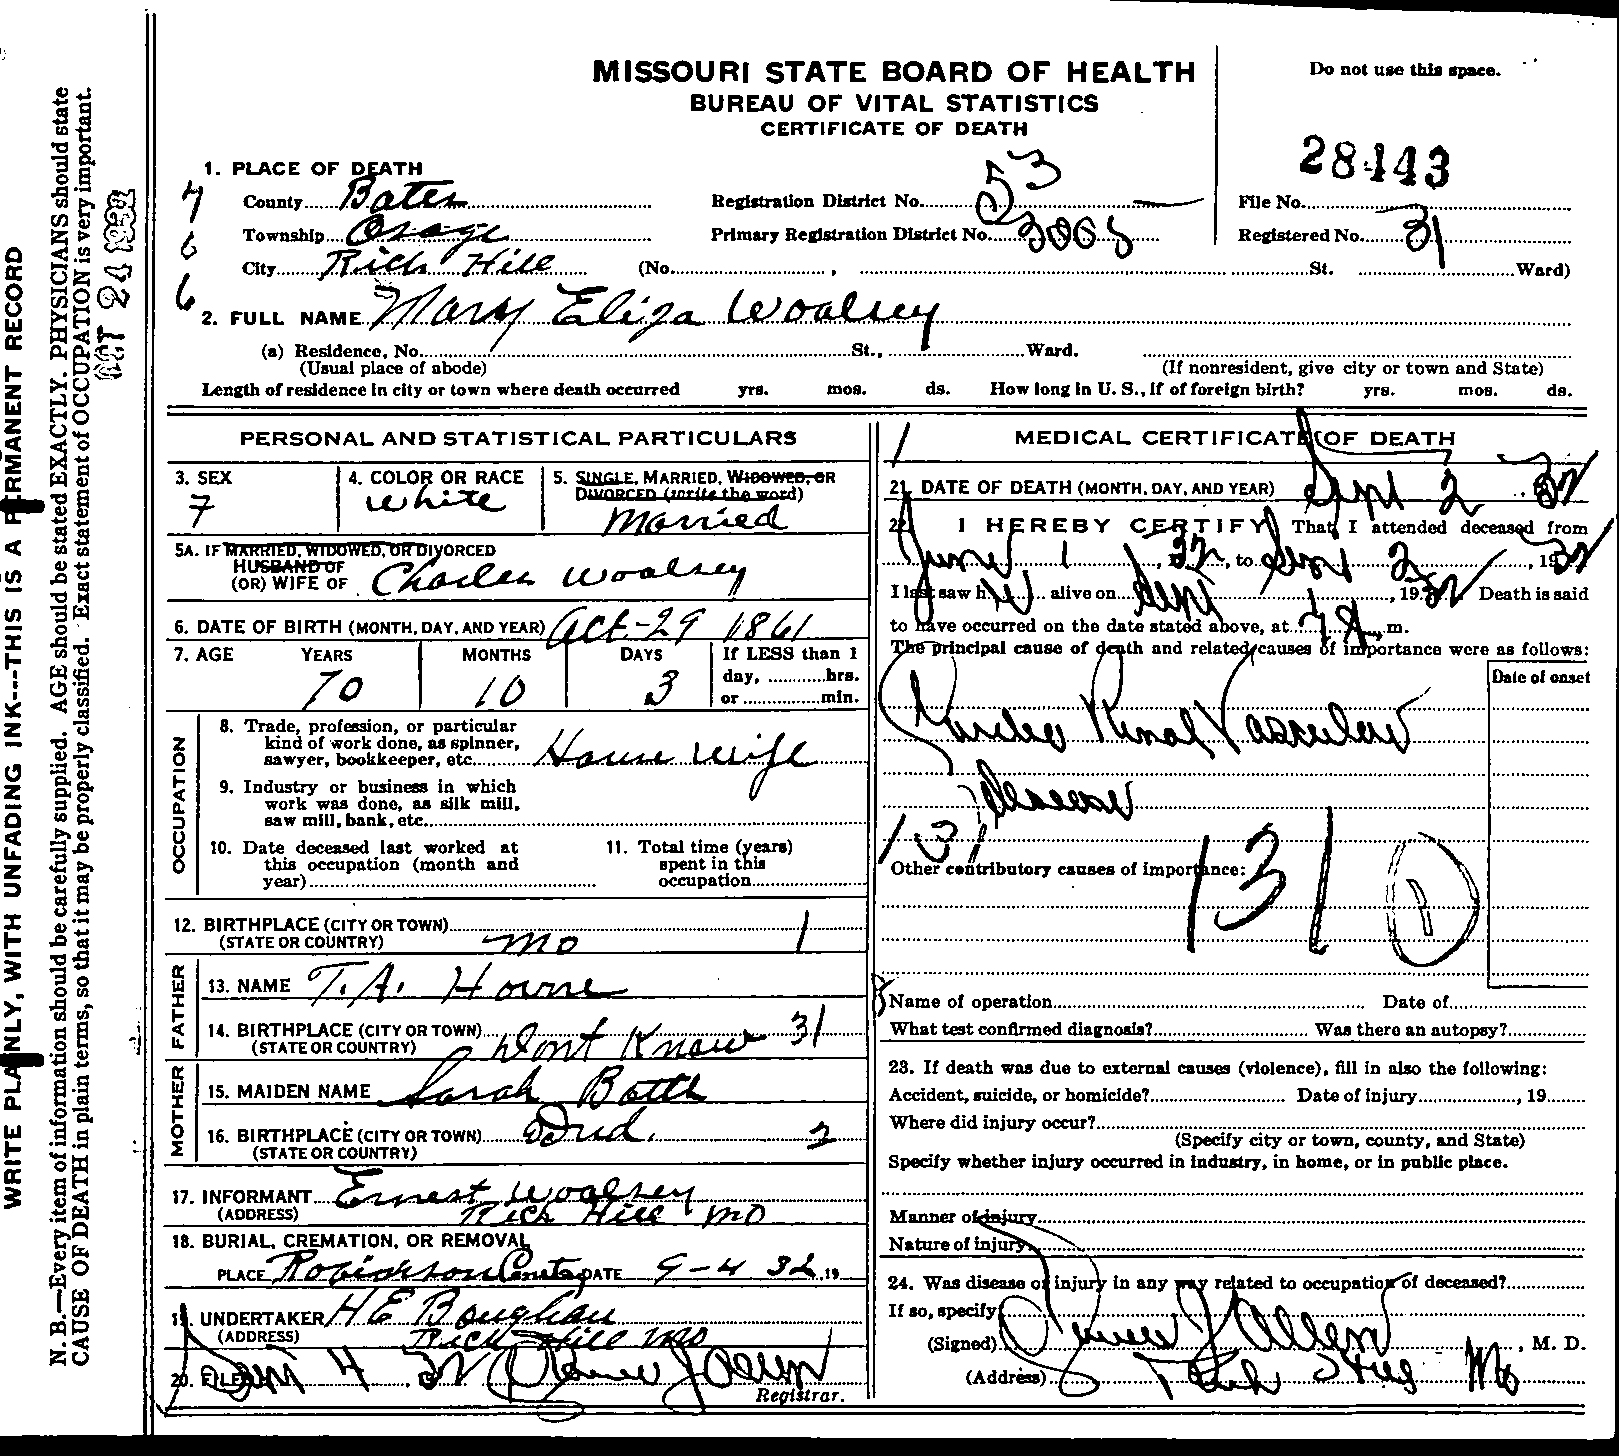 MISSOURI STATE BOARD OF HEALTH
BUREAU OF VITAL STATISTICS
CERTIFICATE OF DEATH
Do not use this space.
28443
WRITE PLAINLY, WITH UNFADING INK---THIS IS A PERMANENT RECORD
N. B.—Every item of information should be carefully supplied. AGE should be stated EXACTLY. PHYSICIANS should state
CAUSE OF DEATH in plain terms, so that it may be properly classified. Exact statement of OCCUPATION is very important.
OCT 24 1932
1. PLACE OF DEATH
County Bates Registration District No. 53 File No.
Township Osage Primary Registration District No. 3005 Registered No. 31
City Rich Hill (No. , St. Ward)
7
6
6
2. FULL NAME Mary Eliza Woolsey
(a) Residence, No. St., Ward.
(Usual place of abode) (If nonresident, give city or town and State)
Length of residence in city or town where death occurred yrs. mos. ds. How long in U. S., if of foreign birth? yrs. mos. ds.
PERSONAL AND STATISTICAL PARTICULARS
3. SEX 4. COLOR OR RACE 5. SINGLE, MARRIED, WIDOWED, OR
DIVORCED (write the word)
7 White Married
5A. IF MARRIED, WIDOWED, OR DIVORCED
HUSBAND OF
(OR) WIFE OF Charles Woolsey
6. DATE OF BIRTH (MONTH, DAY, AND YEAR) Oct-29 1861
7. AGE YEARS MONTHS DAYS If LESS than 1
day, hrs.
or min.
70 10 3
OCCUPATION
8. Trade, profession, or particular
kind of work done, as spinner,
sawyer, bookkeeper, etc. House Wife
9. Industry or business in which
work was done, as silk mill,
saw mill, bank, etc.
10. Date deceased last worked at
this occupation (month and
year)
11. Total time (years)
spent in this
occupation
12. BIRTHPLACE (CITY OR TOWN) 1
(STATE OR COUNTRY) Mo
FATHER
13. NAME T. A. Horne
14. BIRTHPLACE (CITY OR TOWN) Dont Know 31
(STATE OR COUNTRY)
MOTHER
15. MAIDEN NAME Sarah
16. BIRTHPLACE (CITY OR TOWN) Ind. 2
(STATE OR COUNTRY)
17. INFORMANT Ernest Woolsey
(ADDRESS) Rich Hill Mo
18. BURIAL, CREMATION, OR REMOVAL
PLACE Robinson DATE 9-4 32, 19
19. UNDERTAKER H E Boughan
(ADDRESS) Rich Hill Mo
20. FILED Sept 4 32 J Allen
Registrar.
MEDICAL CERTIFICATE OF DEATH
1
21. DATE OF DEATH (MONTH, DAY, AND YEAR) Sept 2 32
22. I HEREBY CERTIFY, That I attended deceased from
June 1, 32, to Sept 2, 1932
I last saw h alive on Sept 1, 1932 Death is said
to have occurred on the date stated above, at m.
The principal cause of death and related causes of importance were as follows:
Date of onset
Cardio Renal Vascular
disease
131
Other contributory causes of importance:
131
Name of operation Date of
What test confirmed diagnosis? Was there an autopsy?
23. If death was due to external causes (violence), fill in also the following:
Accident, suicide, or homicide? Date of injury , 19
Where did injury occur?
(Specify city or town, county, and State)
Specify whether injury occurred in industry, in home, or in public place.
Manner of injury
Nature of injury
24. Was disease or injury in any way related to occupation of deceased?
If so, specify
(Signed) J Allen, M. D.
(Address) Rich Hill Mo